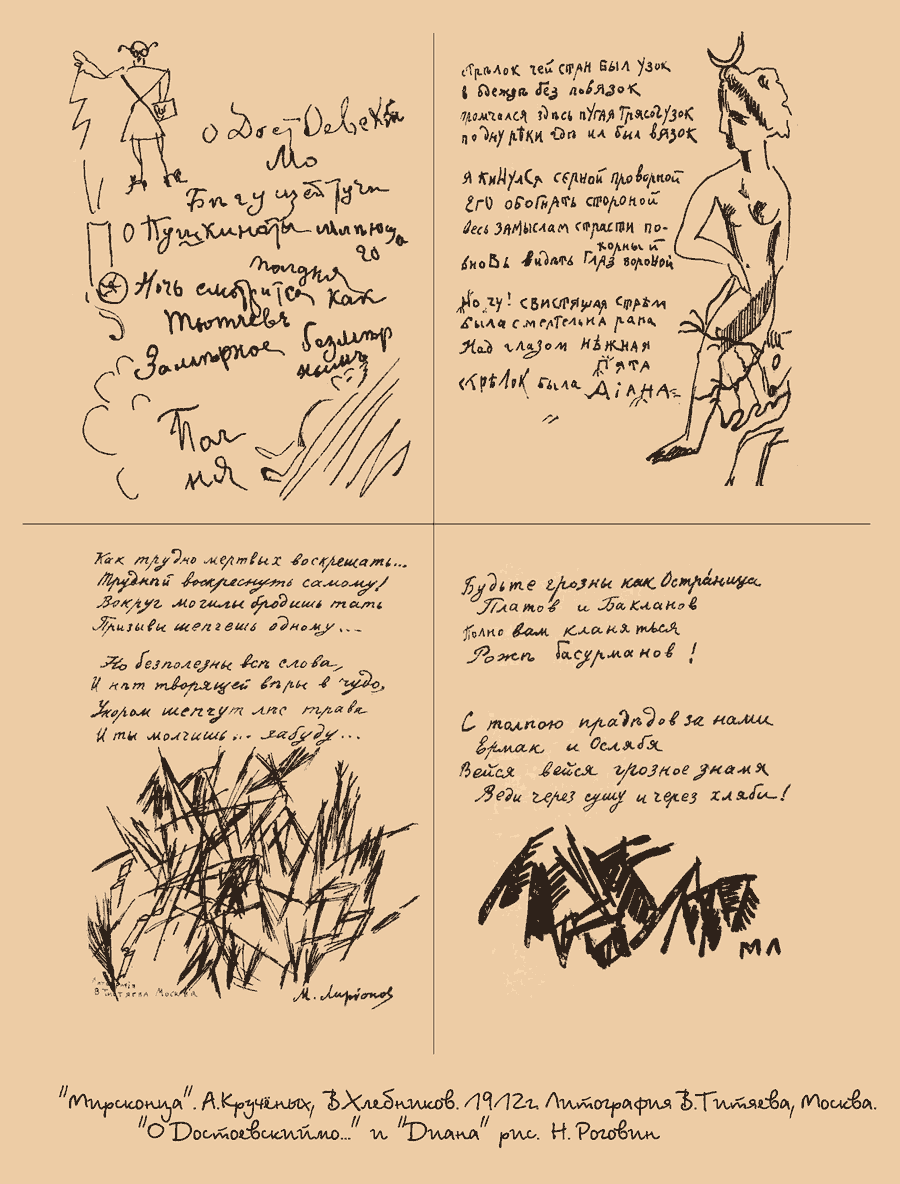 О ДостОевскiй
Мо
Бѣгущей Тучи
О Пушкиноты млѣюща
го
полдня
Ночь смотрится как
Тютчевъ
Замѣрное безмѣр
нымъ
Пол
ня
стрѣлок чей стан был узок
в одеждѣ без повязок
промчался здѣсь пугая трясогузок
по дну рѣки гдѣ ил был вязок
Я кинулся серной проворной
Его обогнать стороной
весь замыслам страсти по-
корный
вновь видать глаз вороной
Но чу! свистящая стрѣм
была смертельна рана
Над глазом нѣжная
пята
стрѣлок была Дiана
Как трудно мертвых воскрешать...
Труднѣй воскреснуть самому!
Вокруг могилы бродишь тать
Призывы шепчешь одному...
Но безполезны всѣ слова,
И нѣт творящей вѣры в чудо,
Укором шепчут лѣс трава
И ты молчишь... забуду...
В Титяева Москва
М. Ларiонов
Будьте грозны как Остра́ница
Платов и Бакланов
Полно вам кланяться
Рожѣ басурманов !
С толпою прадѣдов за нами
Ермак и Ослябя
Вейся вейся грозное знамя
Веди через сушу и через хляби!
МЛ
"Мирсконца". А.Кручёных, В.Хлебников. 1912г. Литография В.Титяева, Москва.
"О Достоевскиймо..." и "Диана" рис. Н. Роговин